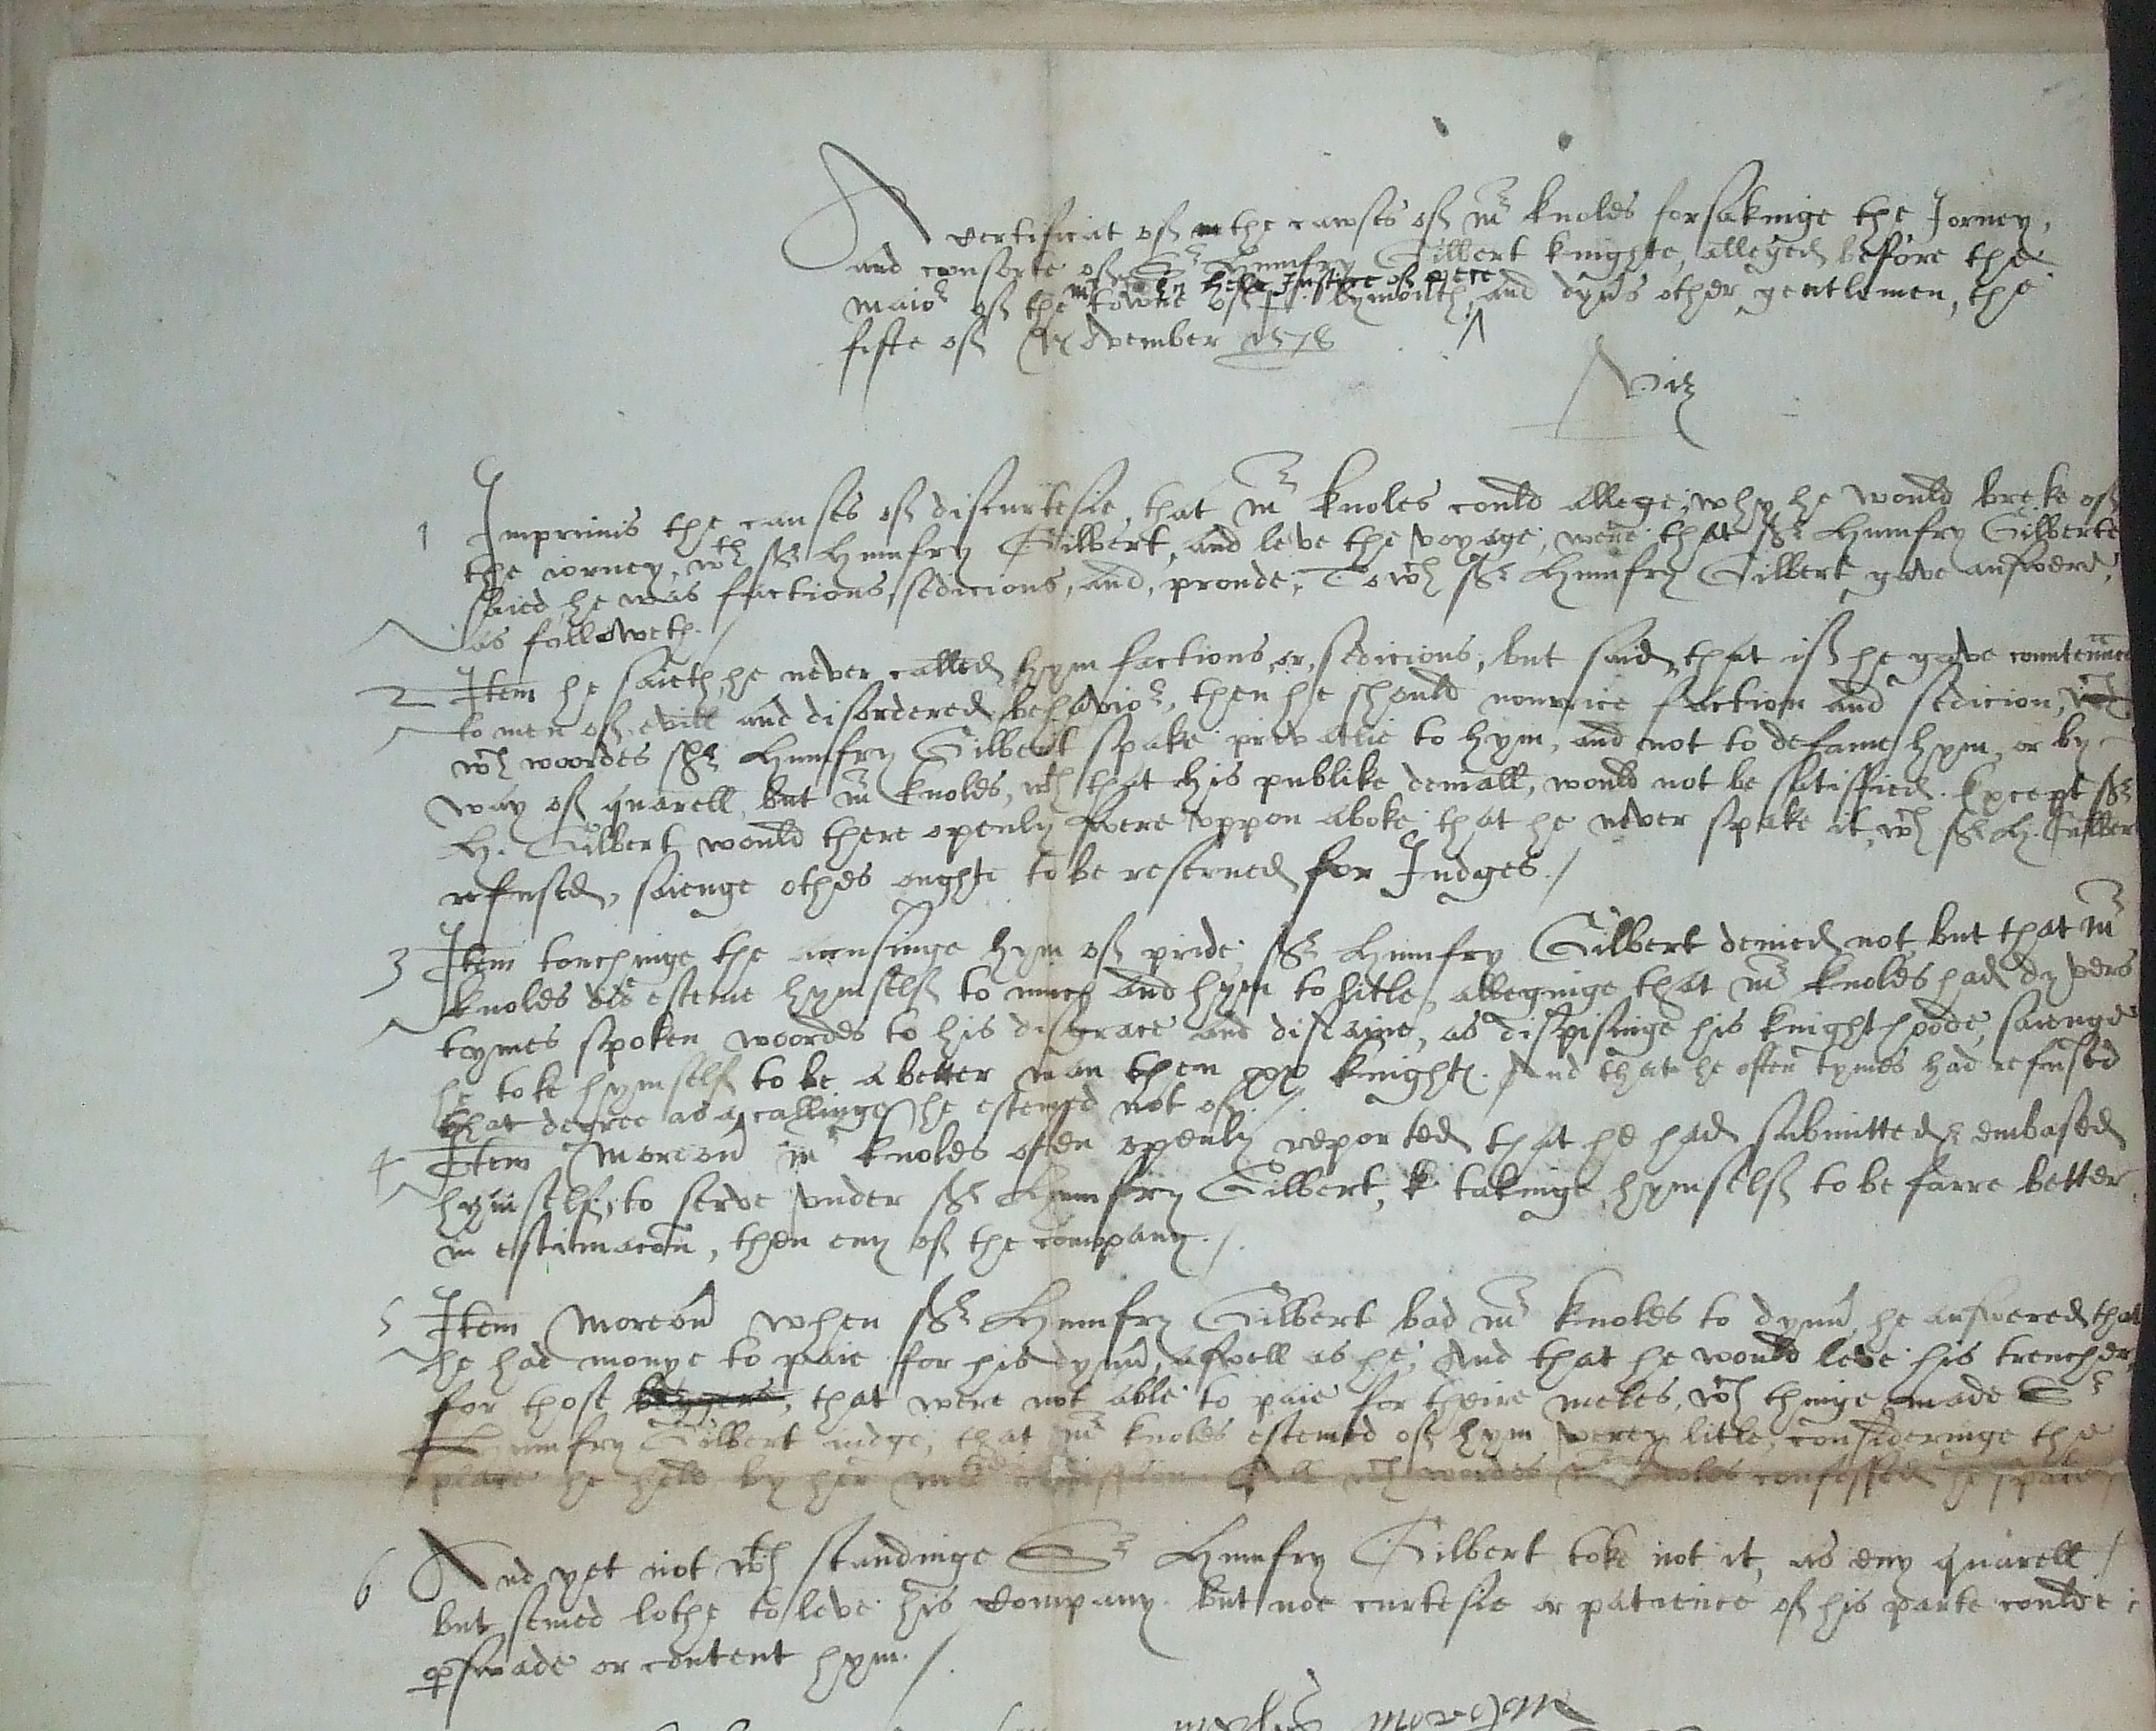 A certificat of the cawses of Mr knoles forsakinge the Jorney,
and consorte of Sr Humfry Gilbert knighte, alleged before the
Justice of pece
maior of the towne of plymouth, and dyvers other gentlemen, the
fifte of November 1578
Viz
1 Imprimis the causes of discurtesie, that mr knoles could allege, why he would breke of
the iorney, wth Sr Humfry Gilbert, and leve the voyage, were that Sr Humfry Gilberte
saied he was factious, sedicious, and, proude, To wch Sr Humfry Gilbert gave answere,
as followeth./
2 Item he saieth, he never called hym factious, or, sedicious, but said, that if he gave countenance
to men of evill and disordered behavior, then he should nourrice faction and sedicion,
wch woordes Sr Humfry Gilbert spake privatlie to hym, and not to defame hym, or by
way of quarell, but mr knoles, wth that his publike deniall, would not be satisfied. Except Sr
H. Gilbert would there openly swere uppon a boke that he never spake it, wch Sr H. Gilbert
refused, saienge othes oughte to be reserued for Judges./
3 Item touchinge the accusinge hym of pride, Sr Humfry Gilbert denied not, but that mr
knoles did esteme hymself to much and hym to litle, alleginge that mr knoles had dyvers
tymes spoken woordes to his disgrace and disdaine, as dispisinge his knighthoode, saienge
he toke hymself to be a better man then xx knightes. And that he often tymes had refused
that degree as a callinge he estemed not of./
4 Item moreover mr knoles often openly reported that he had submitted & embased
hymself, to serve under Sr Humfry Gilbert, k. takinge hymself to be farre better
in estimacon, then eny of the company./
5 Item moreover when Sr Humfry Gilbert bad mr knoles to dynner, he answered that
he had monye to paie for his dynner, aswell as he, And that he would leve his trencher,
for those beggers, that were not able to paie for theire meles, wch thinge made Sr
Humfry Gilbert iudge, that mr knoles estemed of hym verey litle, consideringe the
place he held by her All wch wordes mr knoles confessed he spake
6 And yet not wth standinge Sr Humfry Gilbert toke not it, as eny quarell/
but semed lothe to leve his company. but noe curtesie or patience of his parte coulde
perswade or content hym./
morgan